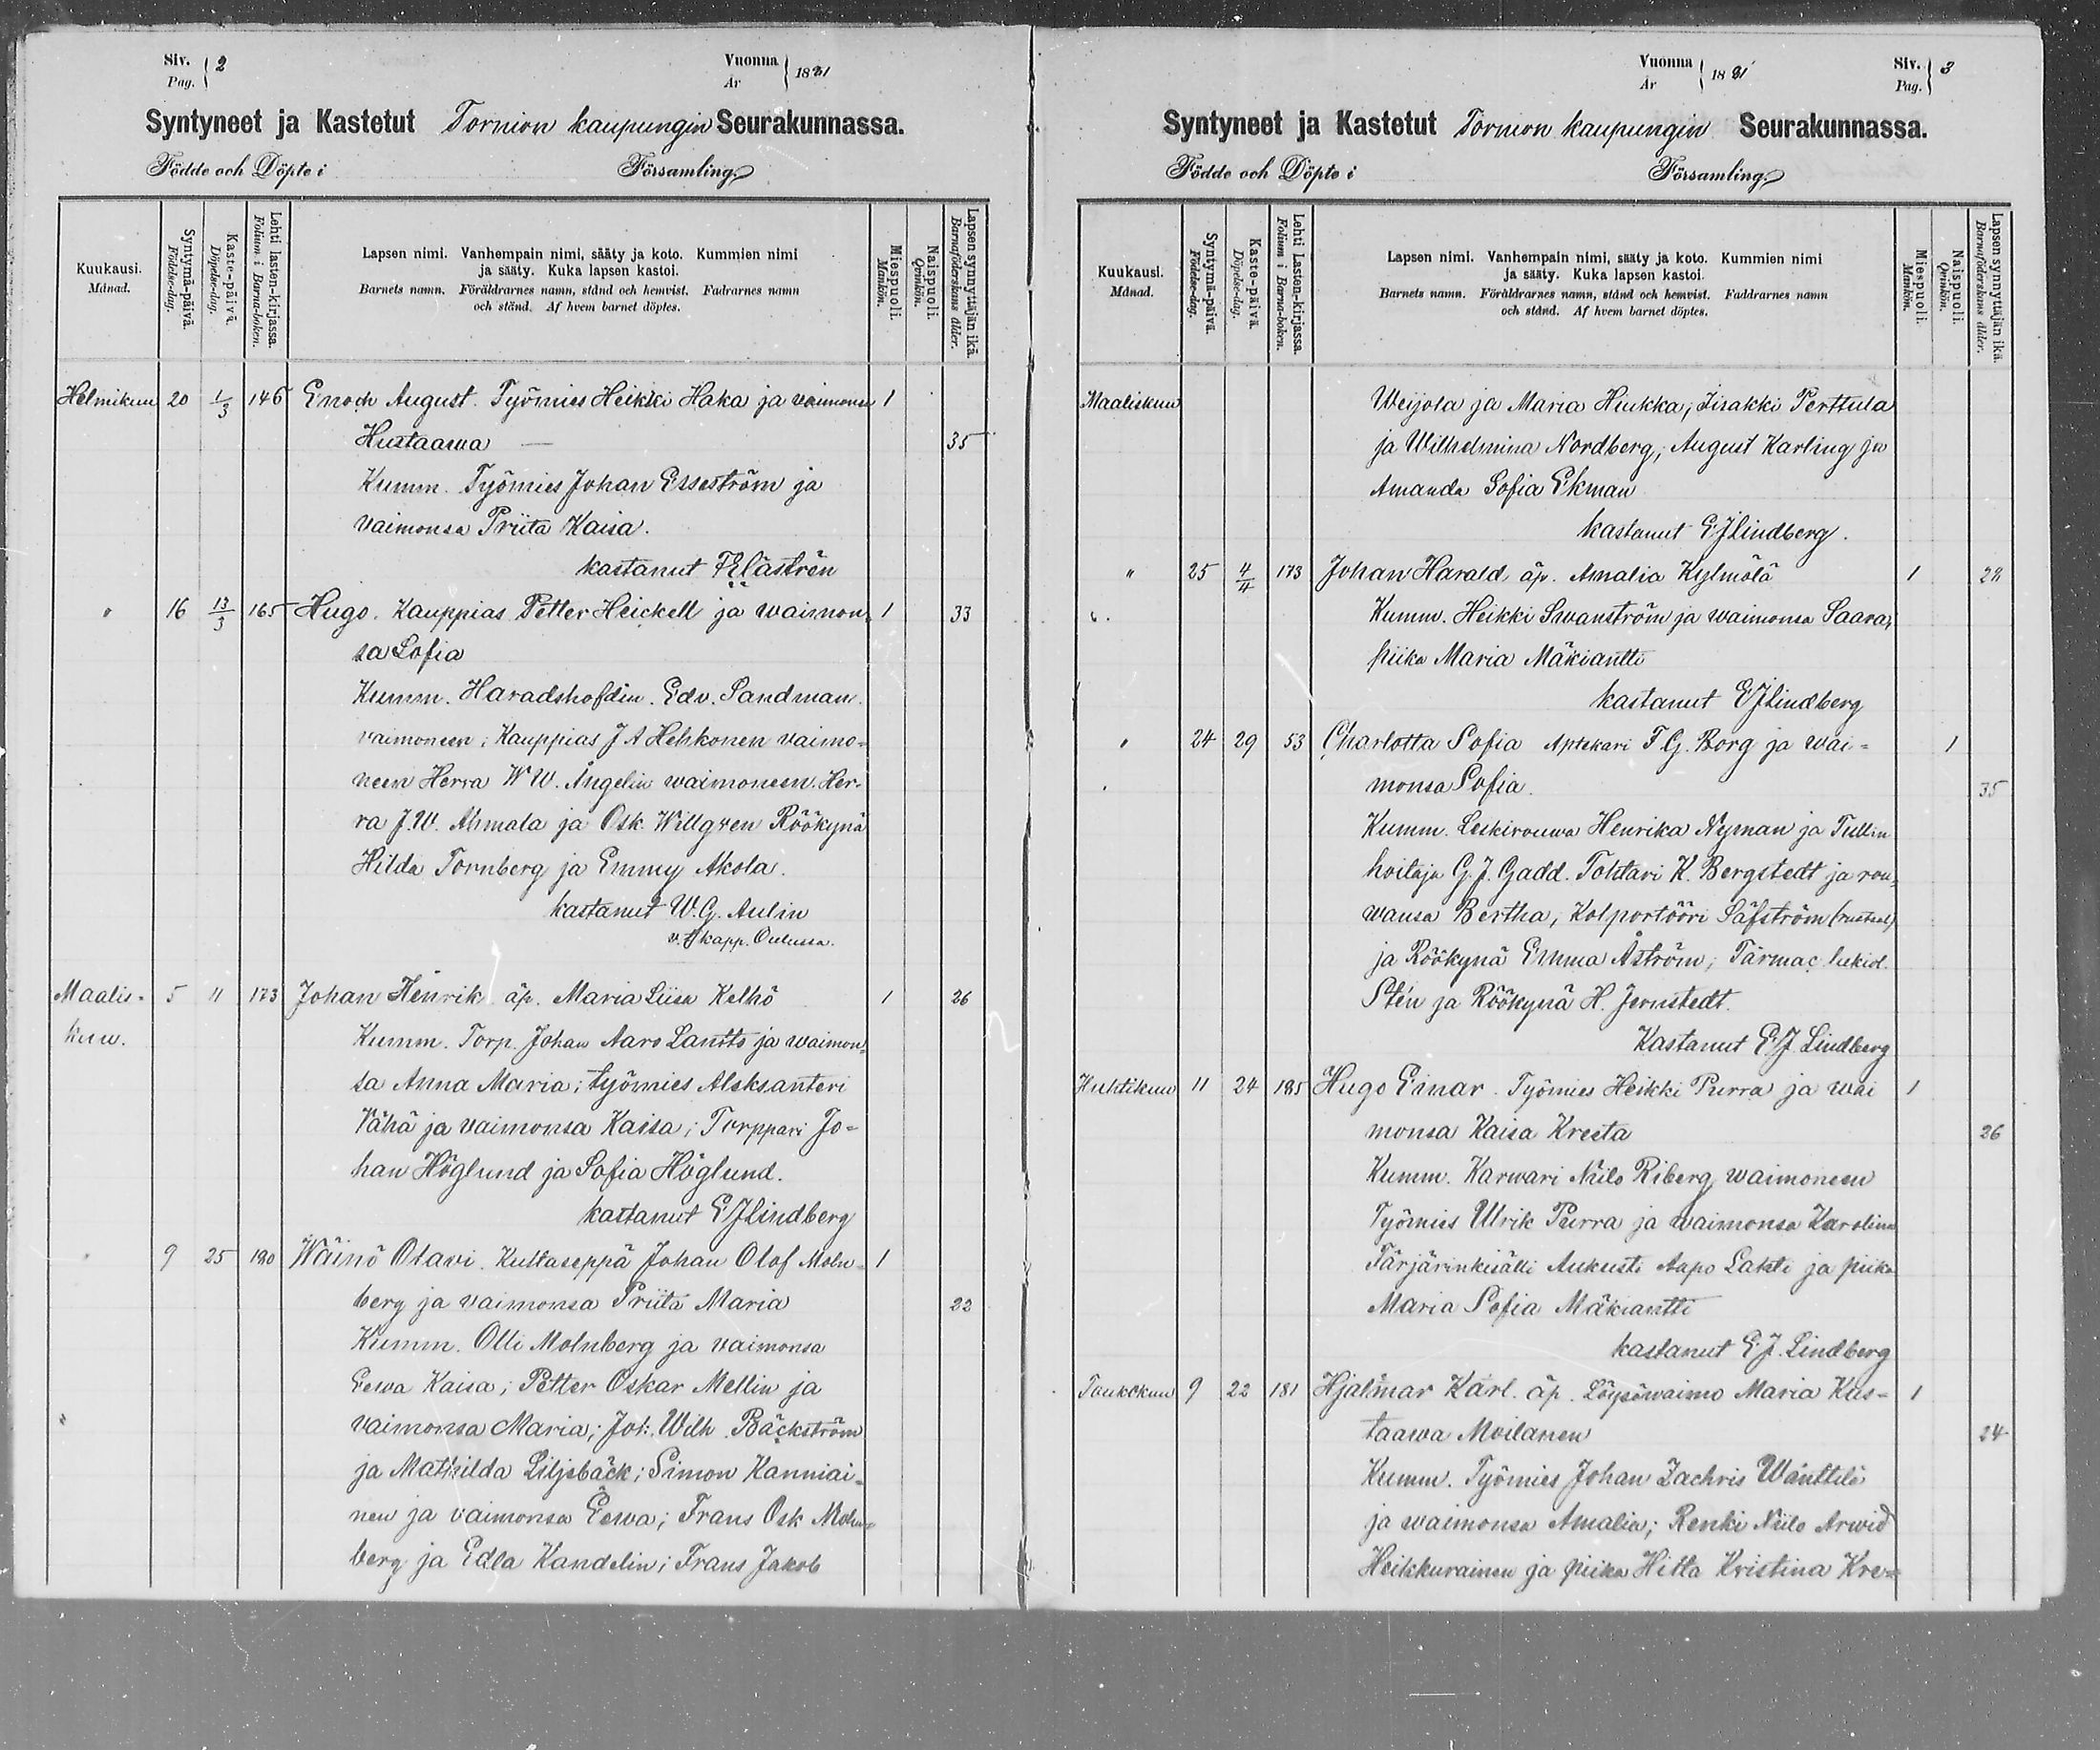 Siv. Pag. 2
Vuonna År 1881
Syntyneet ja Kastetut Tornion kaupungin Seurakunnassa.
Födde och Döpte i Församling.
Kuukausi. Månad.
Syntymä-päivä. Födelse-dag.
Kaste-päivä. Döpelse-dag.
Lehti lasten-kirjassa. Folium i Barna-boken.
Lapsen nimi. Vanhempain nimi, sääty ja koto. Kummien nimi
ja sääty. Kuka lapsen kastoi.
Barnets namn. Föräldrarnes namn, stånd och hemvist. Fadrarnes namn
och stånd. Af hvem barnet döptes.
Miespuoli. Mankön.
Naispuoli. Qvinkön.
Lapsen synnyttäjän ikä. Barnaföderskans ålder.
Helmikuu 20 1/3 146 Enoch August. Työmies Heikki Haka ja vaimonsa 1
Hustaawa — 35
Kumm. Työmies Johan Esseström ja
vaimonsa Priita Kaisa.
kastanut
" 16 13/3 165 Hugo. Kauppias Petter Heickell ja waimon- 1 33
sa Sofia
Kumm. Haradshofdin. Edv. Sandman
vaimoneen; Kauppias J A Hehkonen vaimo-
neen Herra W W. Ångelin waimoneen. Her-
ra J. W. Ahmala ja Osk. Willgren Röökynä
Hilda Tornberg ja Emmy Akola.
kastanut W. G. Aulin
v. t. kapp. Oulussa.
Maalis- 5 11 173 Johan Henrik äp. Maria Liisa Kelhö 1 26
kuu. Kumm. Torp. Johan Aaro Lantto ja waimon-
sa Anna Maria; työmies Aleksanteri
Vähä ja vaimonsa Kaisa; Torppari Jo-
han Höglund ja Sofia Höglund.
kastanut E J Lindberg
" 9 25 180 Wäinö Olavi. Kultaseppä Johan Olof Moln- 1
berg ja vaimonsa Priita Maria 22
Kumm. Olli Molnberg ja vaimonsa
Eewa Kaisa; Petter Oskar Mellin ja
vaimonsa Maria; Joh. Wilh. Bäckström
ja Mathilda Liljebäck; Simon Kanniai-
nen ja vaimonsa Eewa; Frans Osk Moln-
berg ja Edla Kandelin; Frans Jakob
Vuonna År 1881
Siv. Pag. 3
Syntyneet ja Kastetut Tornion kaupungin Seurakunnassa.
Födde och Döpte i Församling.
Kuukausi. Månad.
Syntymä-päivä. Födelse-dag.
Kaste-päivä. Döpelse-dag.
Lehti Lasten-kirjassa. Folium i Barna-boken.
Lapsen nimi. Vanhempain nimi, sääty ja koto. Kummien nimi
ja sääty. Kuka lapsen kastoi.
Barnets namn. Föräldrarnes namn, stånd och hemvist. Faddrarnes namn
och stånd. Af hvem barnet döptes.
Miespuoli. Mankön.
Naispuoli. Qvinkön.
Lapsen synnyttäjän ikä. Barnaföderskans ålder.
Maaliskuu Weijola ja Maria Hiukka; Iisakki Perttula
ja Wilhelmina Nordberg; August Karling ja
Amanda Sofia Ekman
kastanut E J Lindberg.
" 25 4/4 173 Johan Harald äp. Amalia Kylmölä 1 22
Kumm. Heikki Swanström ja waimonsa Saara;
piika Maria Mäkiantti
kastanut E J Lindberg
" 24 29 53 Charlotta Sofia Aptekari F. G. Borg ja wai- 1
monsa Sofia. 35
Kumm. Leskirouwa Henrika Nyman ja Tullin
hoitaja G. J. Gadd. Tohtari K. Bergstedt ja rou-
wansa Bertha, Kolportööri Säfström
ja Röökynä Emma Åström;
Stén ja Röökynä H. Jernstedt.
Kastanut E. J. Lindberg
Huhtikuu 11 24 185 Hugo Einar. Työmies Heikki Purra ja wai 1
monsa Kaisa Kreeta 26
Kumm. Karwari Niilo Riberg waimoneen
Työmies Ulrik Purra ja waimonsa Karolina
Färjärinkisälli Aukusti Aapo Lahti ja piika
Maria Sofia Mäkiantti
kastanut E. J. Lindberg
Toukokuu 9 22 181 Hjalmar Karl. äp. Löysäwaimo Maria Kus- 1
taawa Moilanen 24
Kumm. Työmies Johan Zachris Wänttilä
ja waimonsa Amalia; Renki Niilo Arwid
Heikkurainen ja piika Hilta Kristina Kre-